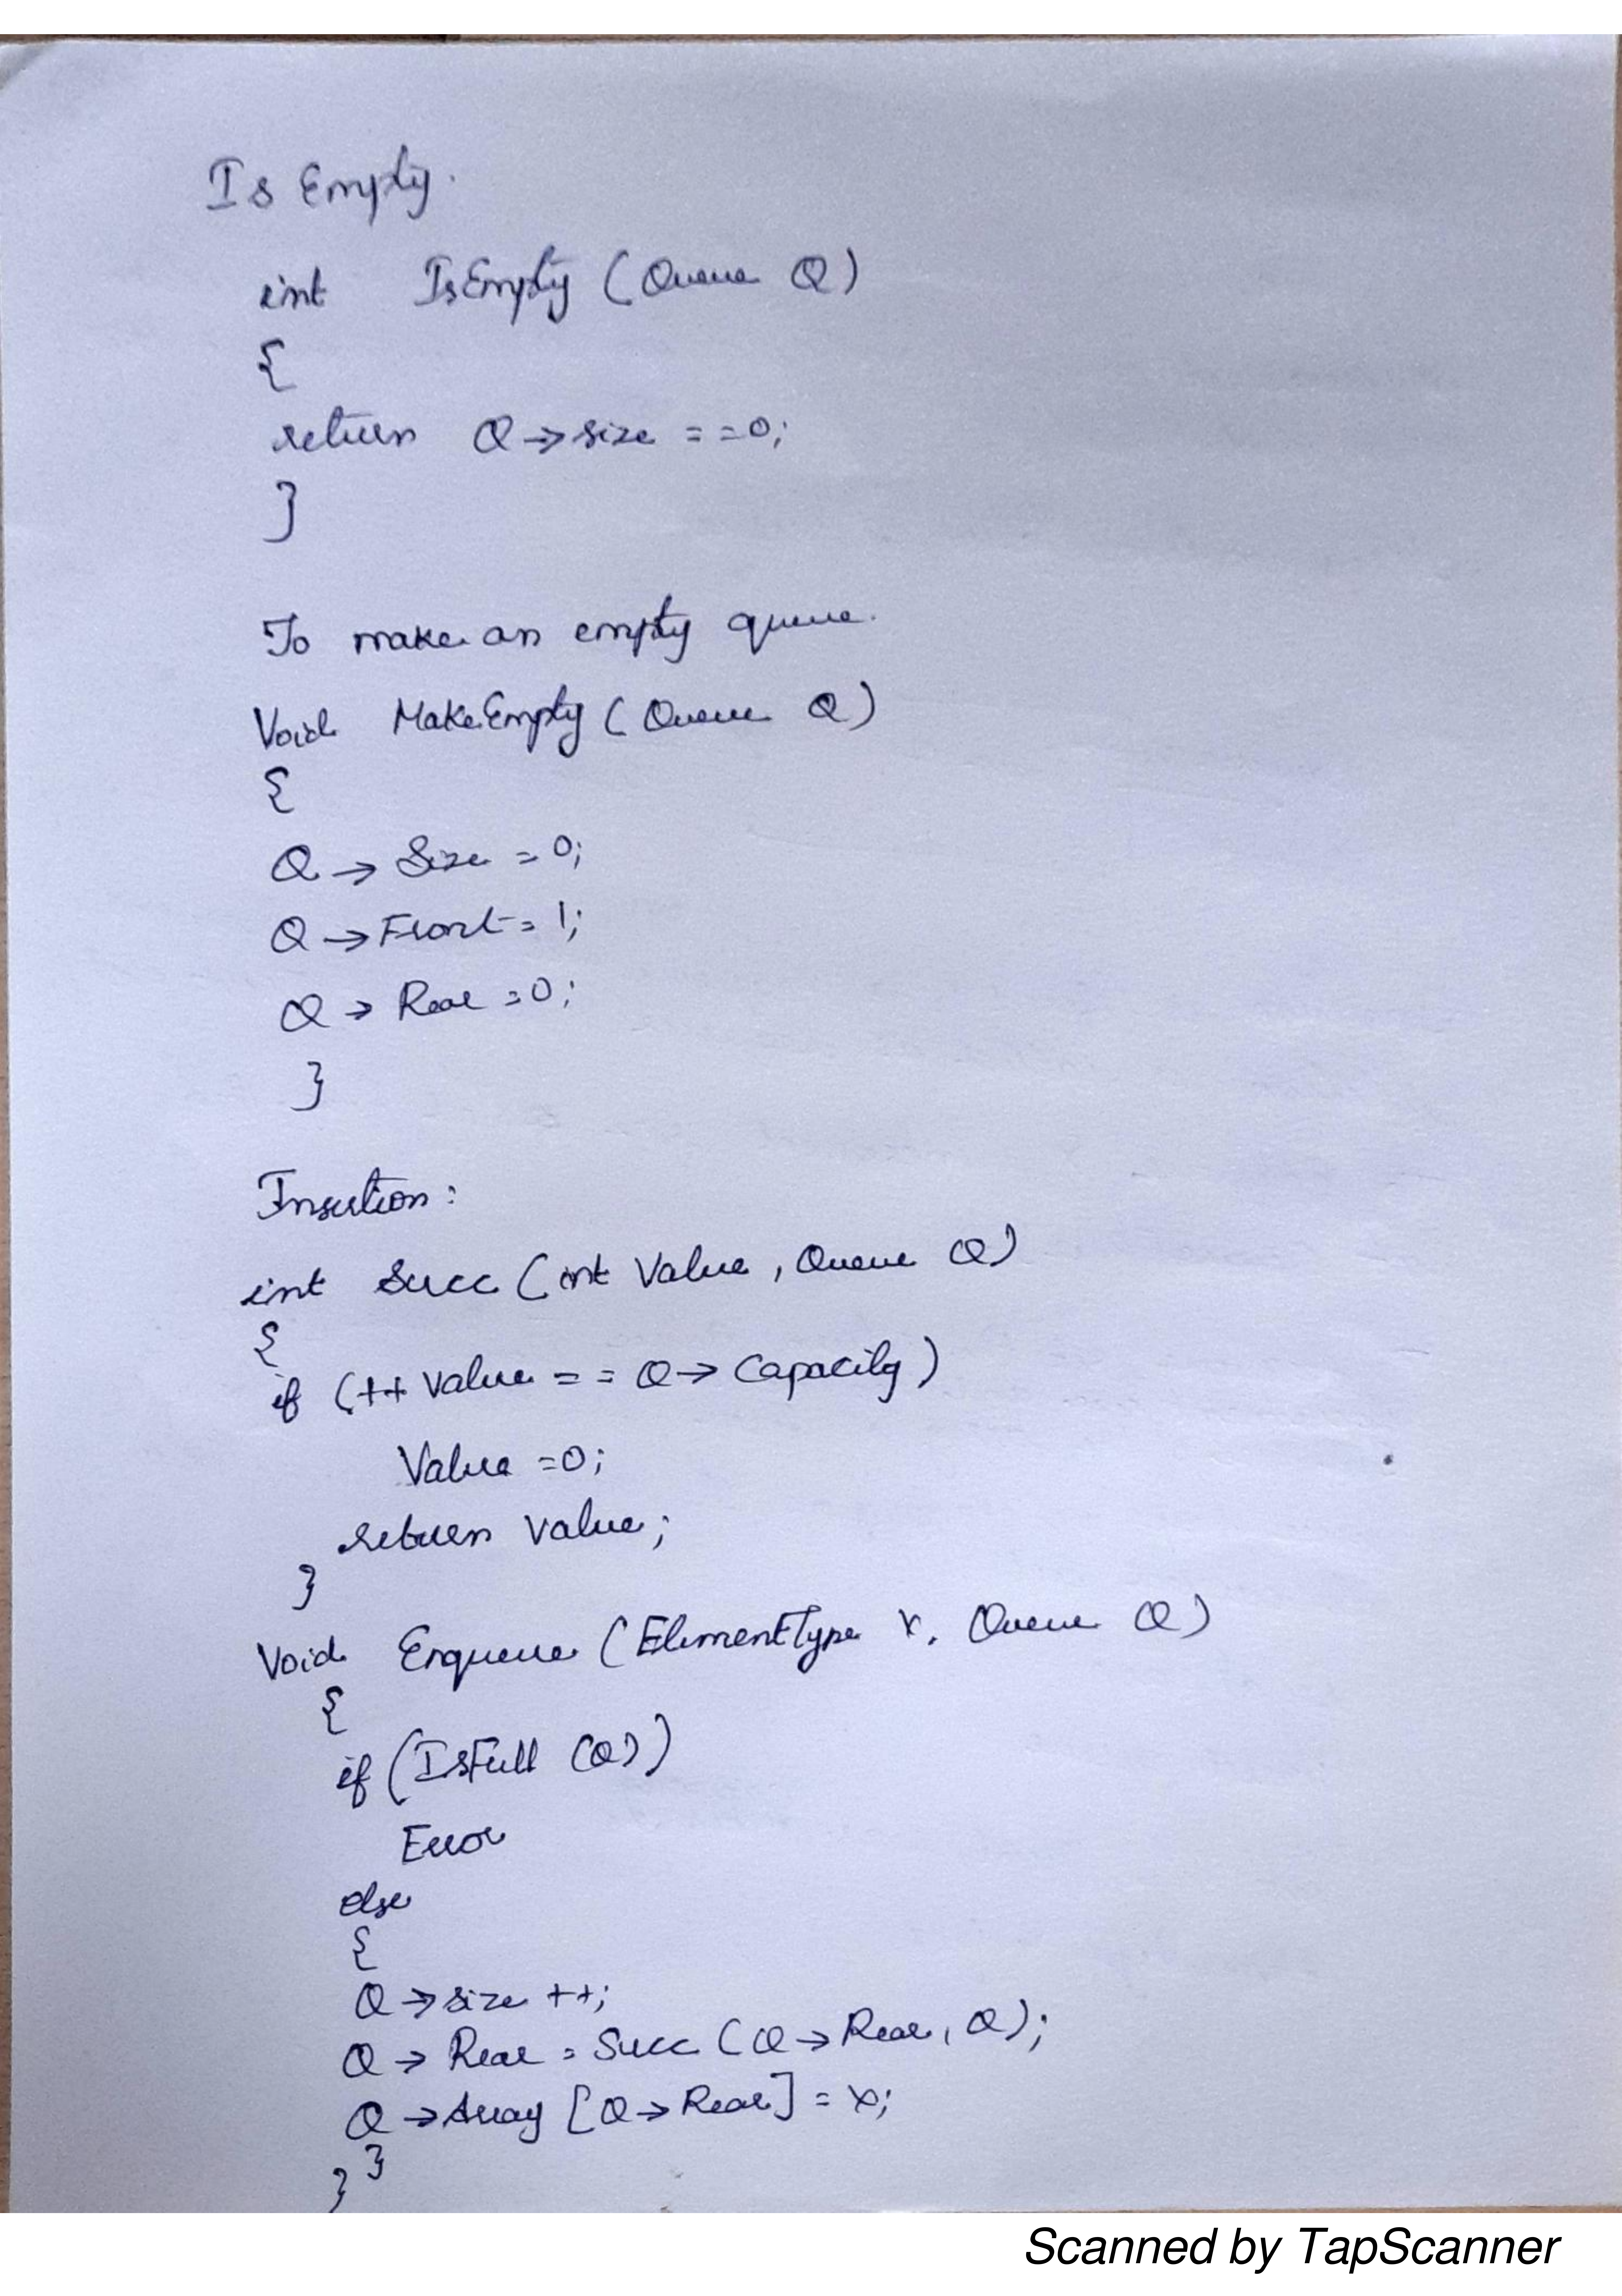 Is Empty.
int IsEmpty (Queue Q)
{
return Q→size ==0;
}
To make an empty queue.
Void MakeEmpty (Queue Q)
{
Q→ Size = 0;
Q→Front = 1;
Q→ Rear =0;
}
Insertion:
int Succ (int Value, Queue Q)
{
if (++ Value == Q→ Capacity)
Value =0;
return Value;
}
Void Enqueue (ElementType X, Queue Q)
{
if (IsFull (Q))
Error
else
{
Q→size ++;
Q→ Rear = Succ (Q→Rear, Q);
Q→Array [Q→Rear] = X;
}
}
Scanned by TapScanner